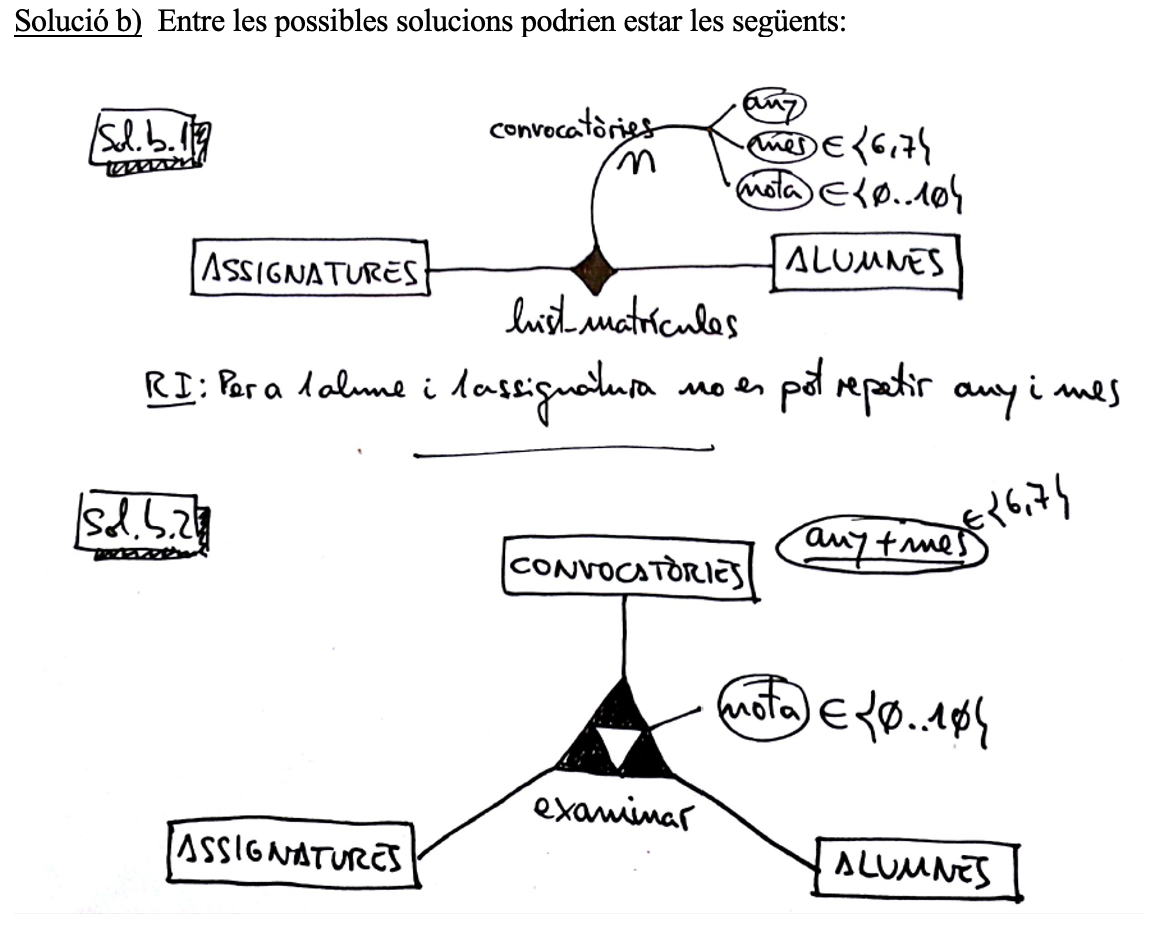 Solució b) Entre les possibles solucions podrien estar les següents:
Sol.b.1
convocatòries
n
any
mes ∈ {6,7}
nota ∈ {0..10}
ASSIGNATURES
ALUMNES
hist_matrícules
RI: Per a 1 alumne i 1 assignatura no es pot repetir any i mes
Sol.b.2
CONVOCATÒRIES
any + mes ∈ {6,7}
nota ∈ {0..10}
examinar
ASSIGNATURES
ALUMNES